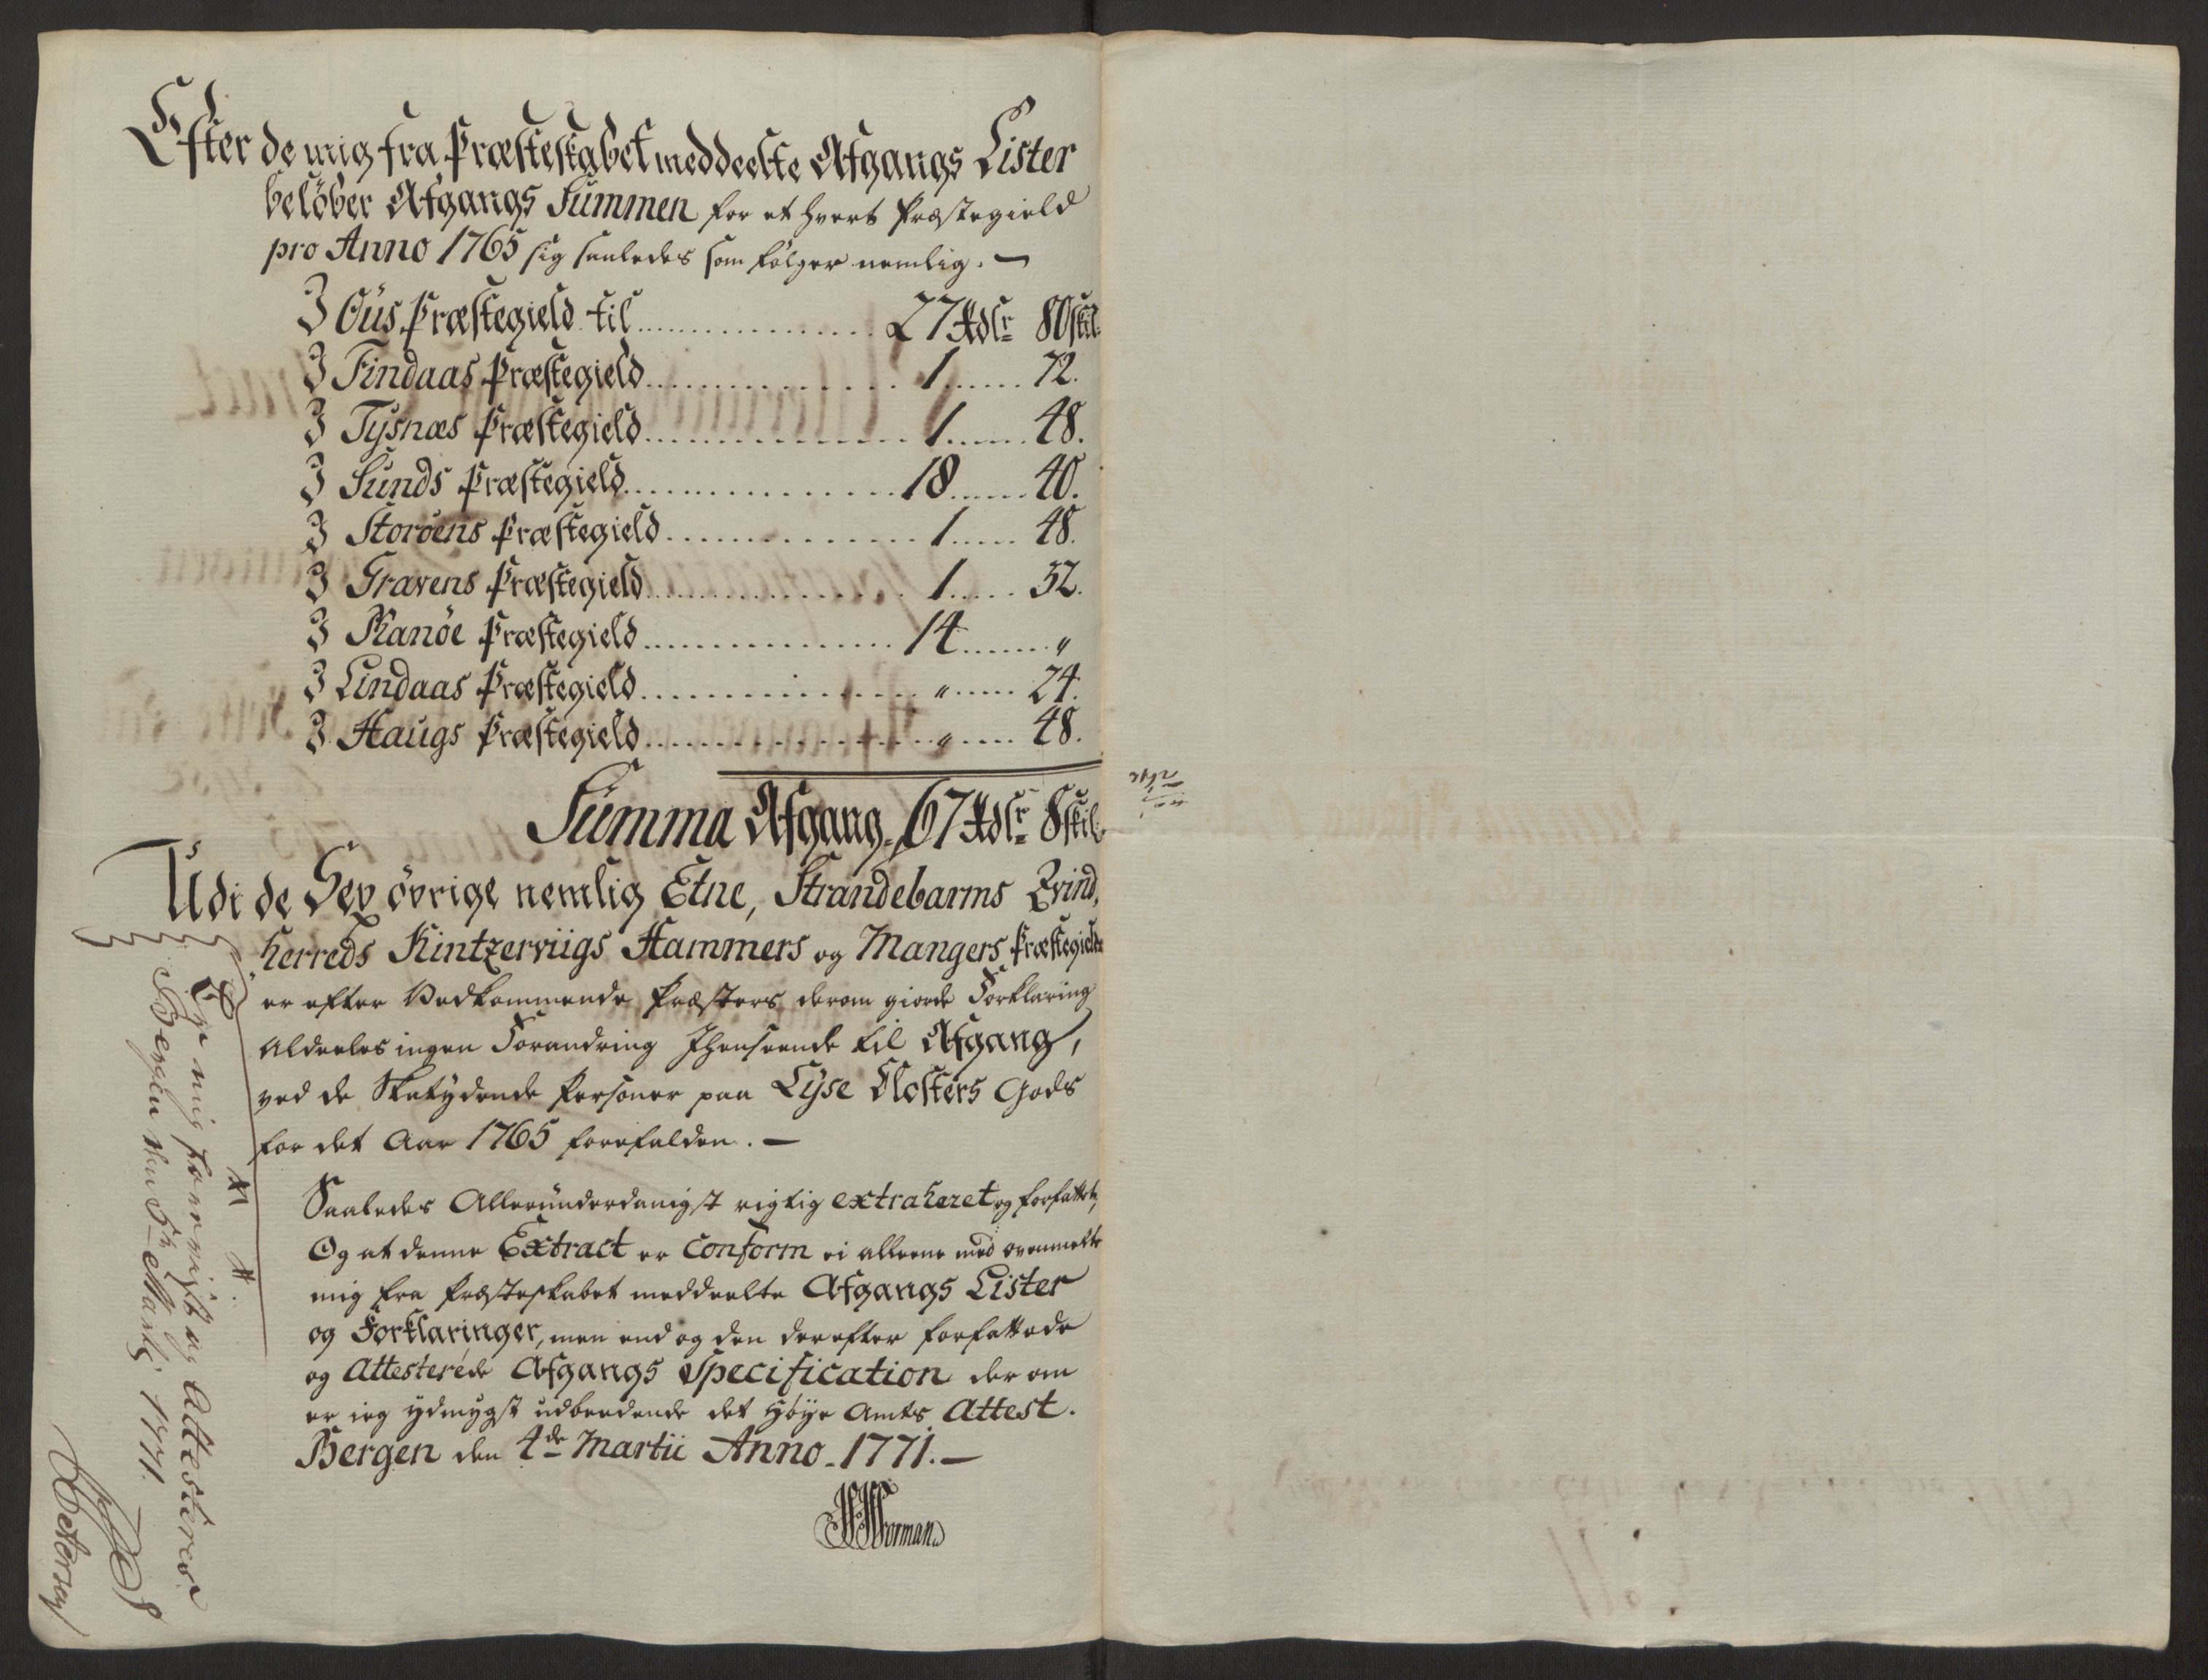 Efter de mig fra Præsteskabet meddeelte Afgangs Lister
belöber Afgangs Summen for et hvert Præstegield
pro Anno 1765 sig saaledes som følger nemlig. —
I Öus Præstegield til 27 Rdlr 80 skil.
I Findaas Præstegield 1 72.
I Tysnæs Præstegield 1 48.
I Sunds Præstegield 18 40.
I Storöens Præstegield 1 48.
I Gravens Præstegield 1 32.
I Kanöe Præstegield 14 "
I Lindaas Præstegield " 24.
I Haugs Præstegield " 48.
Summa Afgang. 67 Rdlr 8 skil.
Udi de Sex övrige nemlig Etne, Strandebarms Qvind,
herreds Kintzerviigs Hammers og Mangers Præstegield
er efter Vedkommende Præsters derom giorde Forklaring
Aldeeles ingen Forandring Henseende til Afgang,
ved de Skatydende Personer paa Lyse Closters Gods
for det Aar 1765 forefalden. —
Saaledes Alleründerdanigst rigtig extraheret og forfattet,
Og at denne Extract er Conform ei alleene med ovenmelte
mig fra Præsteskabet meddeelte Afgangs Lister
og Forklaringer, men end og den derefter forfattede
og Attesterede Afgangs Specification der om
er ieg ydmygst udbeedende det Høye Amts Attest.
Bergen den 4de Martii Anno 1771. —
Worman
Er mig foreviist og Attesteres
Bergen den Martij 1771.